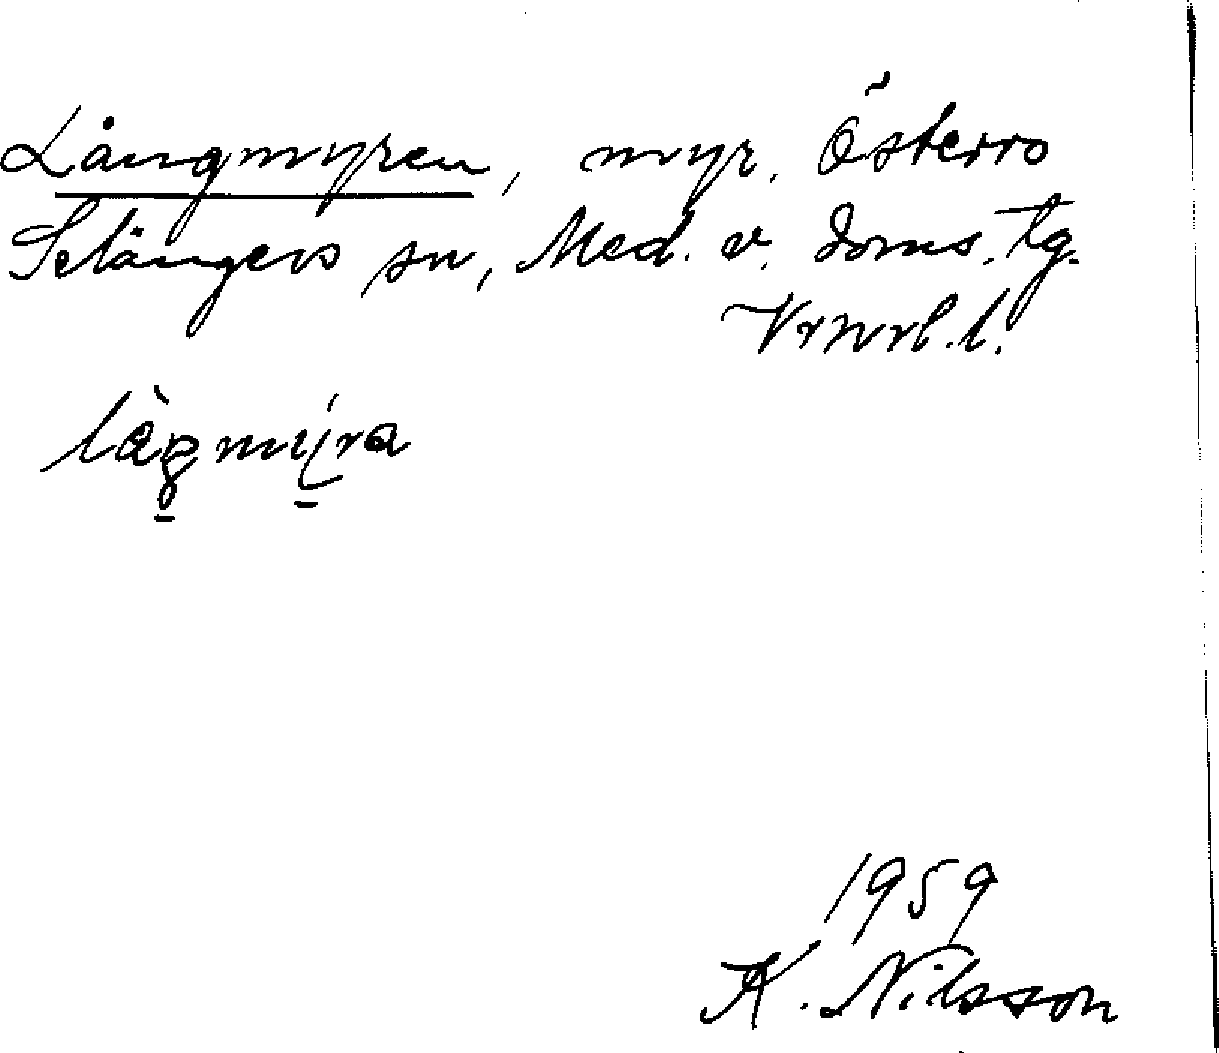 Långmyren, myr, Österro
Selångers sn, Med. v. doms. tg.
Vrnrl. l.
1959
K. Nilsson